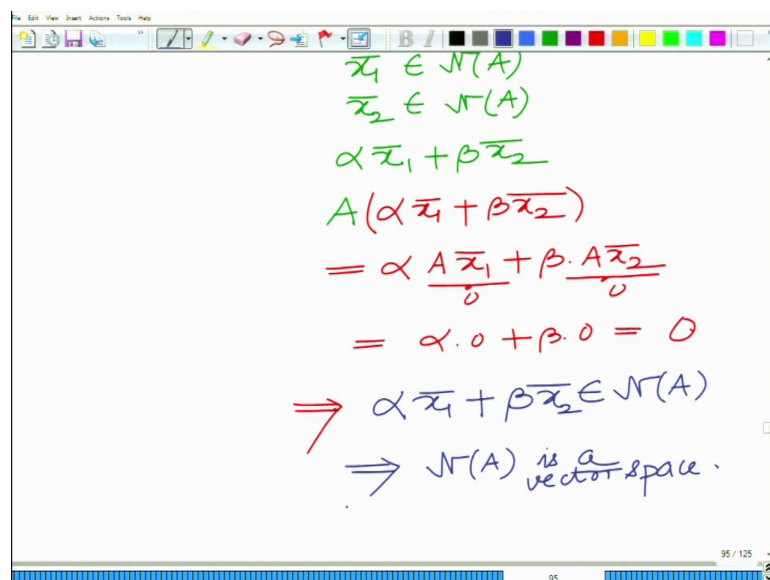 File Edit View Insert Actions Tools Help
B I
x̅₁ ∈ N(A)
x̅₂ ∈ N(A)
αx̅₁ + βx̅₂
A(αx̅₁ + βx̅₂)
= α Ax̅₁ + β. Ax̅₂
0 0
= α.0 + β.0 = 0
⇒ αx̅₁ + βx̅₂ ∈ N(A)
⇒ N(A) is a vector space.
95 / 125
95